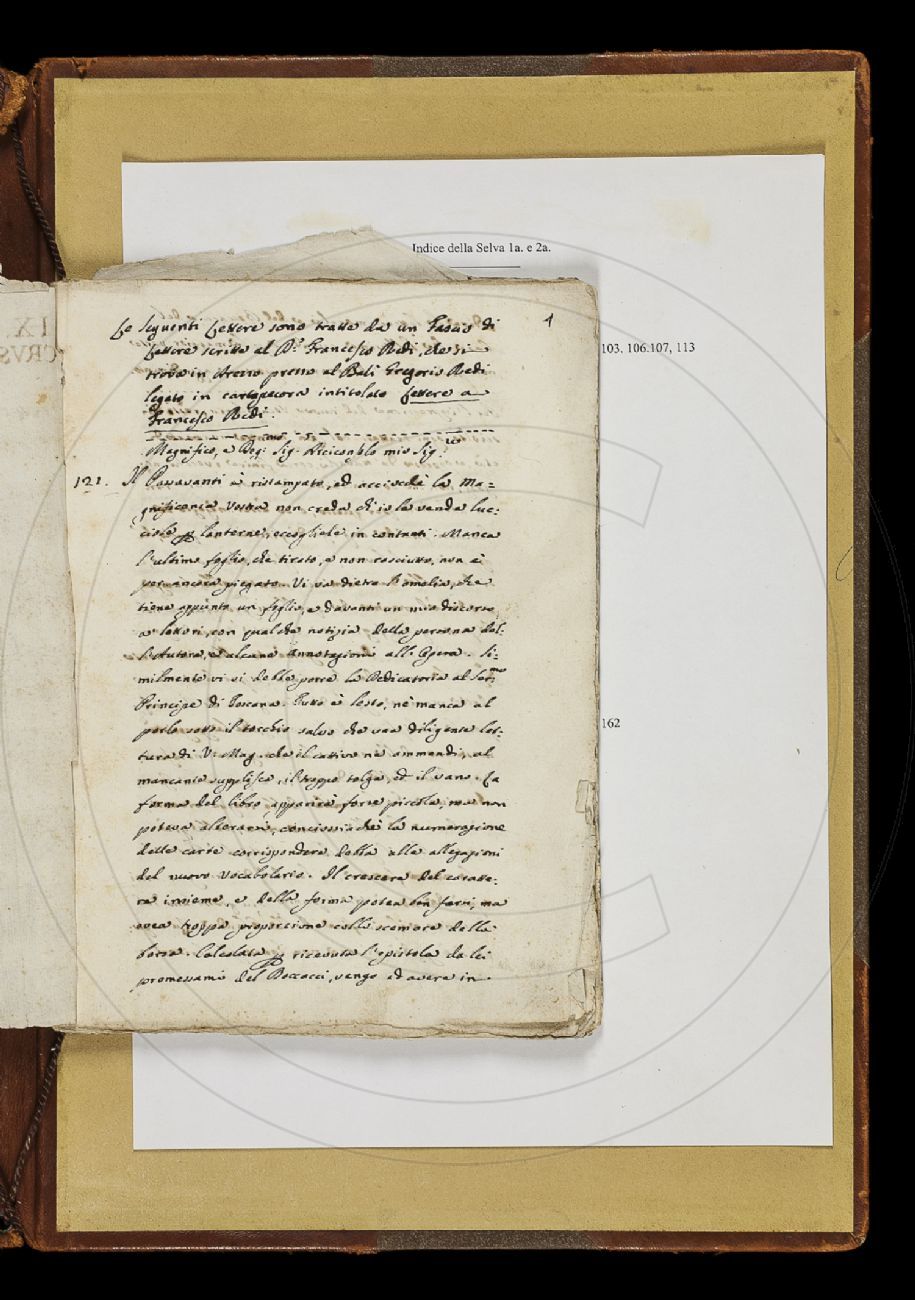 Indice della Selva 1a. e 2a.
103, 106.107, 113
162
1
Le seguenti Lettere sono tratte da un Fascio di
Lettere scritte al D.r Francesco Redi, che si
trova in Arezzo presso al Balì Gregorio Redi
legato in cartapecora intitolato Lettere a
Francesco Redi.
Magnifico, e Sig. mio Sig.
121. Il Passavanti è ristampato, ed acciocchè la Ma=
gnificenza Vostra non creda ch'io le venda luc:
ciole p lanterne, eccogliele in contanti. Manca
l'ultimo foglio, che tirato, e non rasciutto, non è
per ancora piegato. Vi va dietro l'omelia, che
tiene appunto un foglio, e davanti un mio discorso
a' lettori, con qualche notizia della persona del:
l'Autore, e alcune annotazioni all'Opera. Si:
milmente vi si debbe porre la Dedicatoria al Ser.mo
Principe di Toscana. Tutto è lesto, nè manca al
porlo sotto il torchio salvo che una diligente let:
tura di V. Mag. che il cattivo ne ammendi, al
mancante supplisca, il troppo tolga, ed il vano. La
forma del libro apparirà forse piccola, ma non
poteva alterarsi, conciossiachè la numerazione
delle carte corrispondere debba alle allegazioni
del nuovo Vocabolario. Il crescere del caratte:
re insieme, e della forma potea ben farsi, ma
avea troppa proporzione collo scemare della
borsa. Calculata p ricevuta l'epistola da lei
promessami del Boccacci, vengo ad avere in